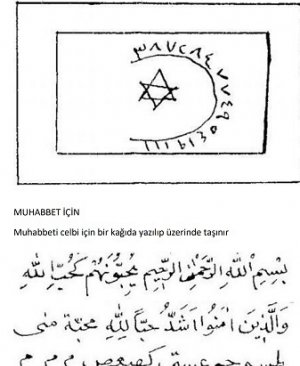 MUHABBET İÇİN
Muhabbeti celbi için bir kağıda yazılıp üzerinde taşınır
بِسْمِ اللهِ الرَّحْمٰنِ الرَّحِيمِ يُحِبُّونَهُمْ كَحُبِّ اللهِ
وَالَّذِينَ اٰمَنُوا اَشَدُّ حُبًّا لِلّٰهِ محبة منى
حمعسق كهيعص م م م